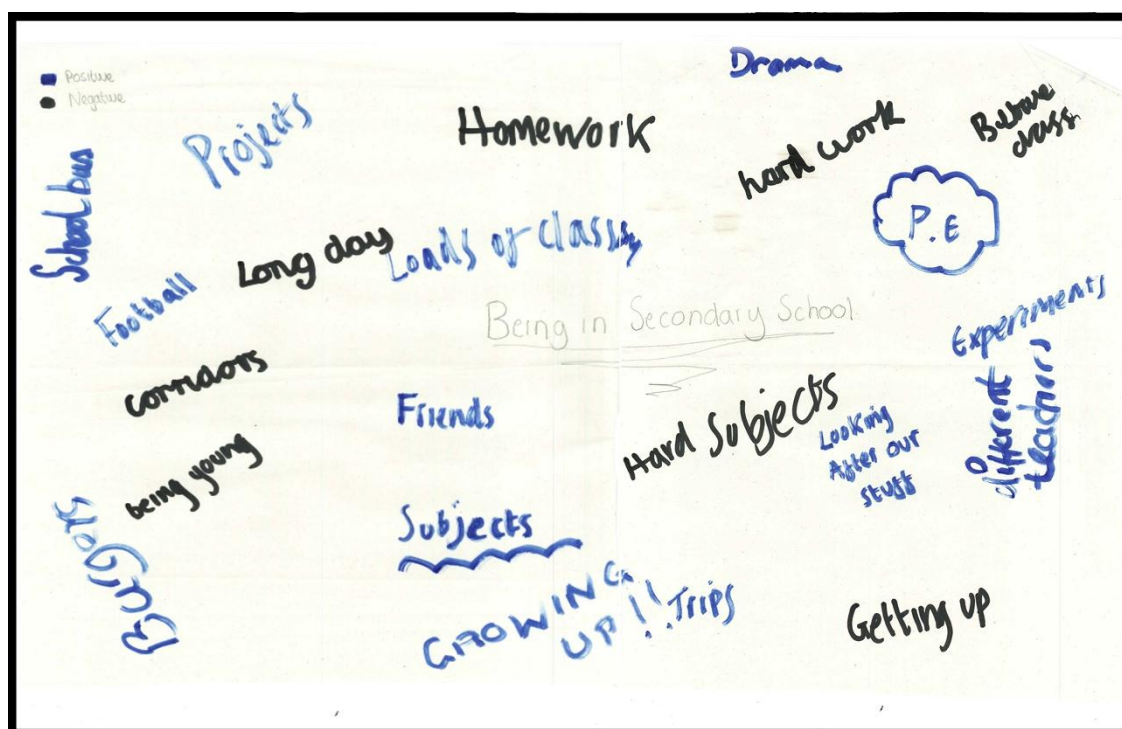 Positive
Negative
Drama
Projects
Homework
hard work
Behave
class
School bus
P.E
Long day
Loads of classes
Football
Being in Secondary School
Experiments
corridors
Friends
Hard Subjects
Looking
After our
stuff
different
teachers
being young
Subjects
GROWING
UP!!
Trips
Getting up